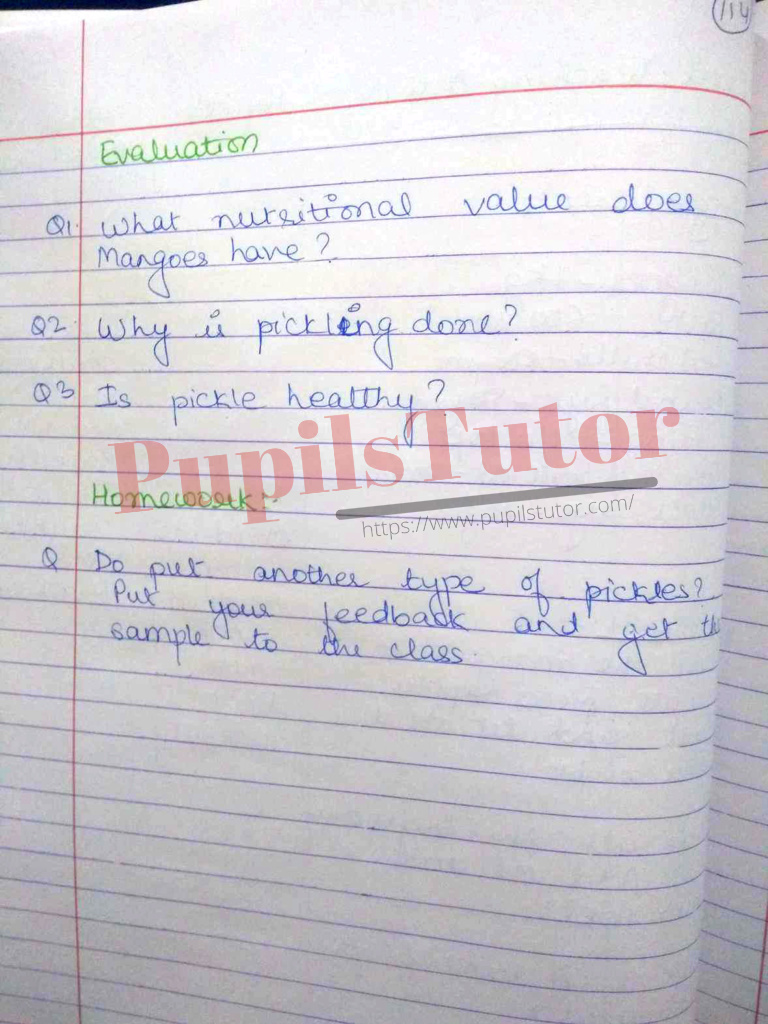 114
Evaluation
Q1. What nutritional value does
Mangoes have?
Q2. Why is pickling done?
Q3 Is pickle healthy?
PupilsTutor
Homework:-
https://www.pupilstutor.com/
Q Do put another type of pickles?
Put your feedback and get
sample to the class.